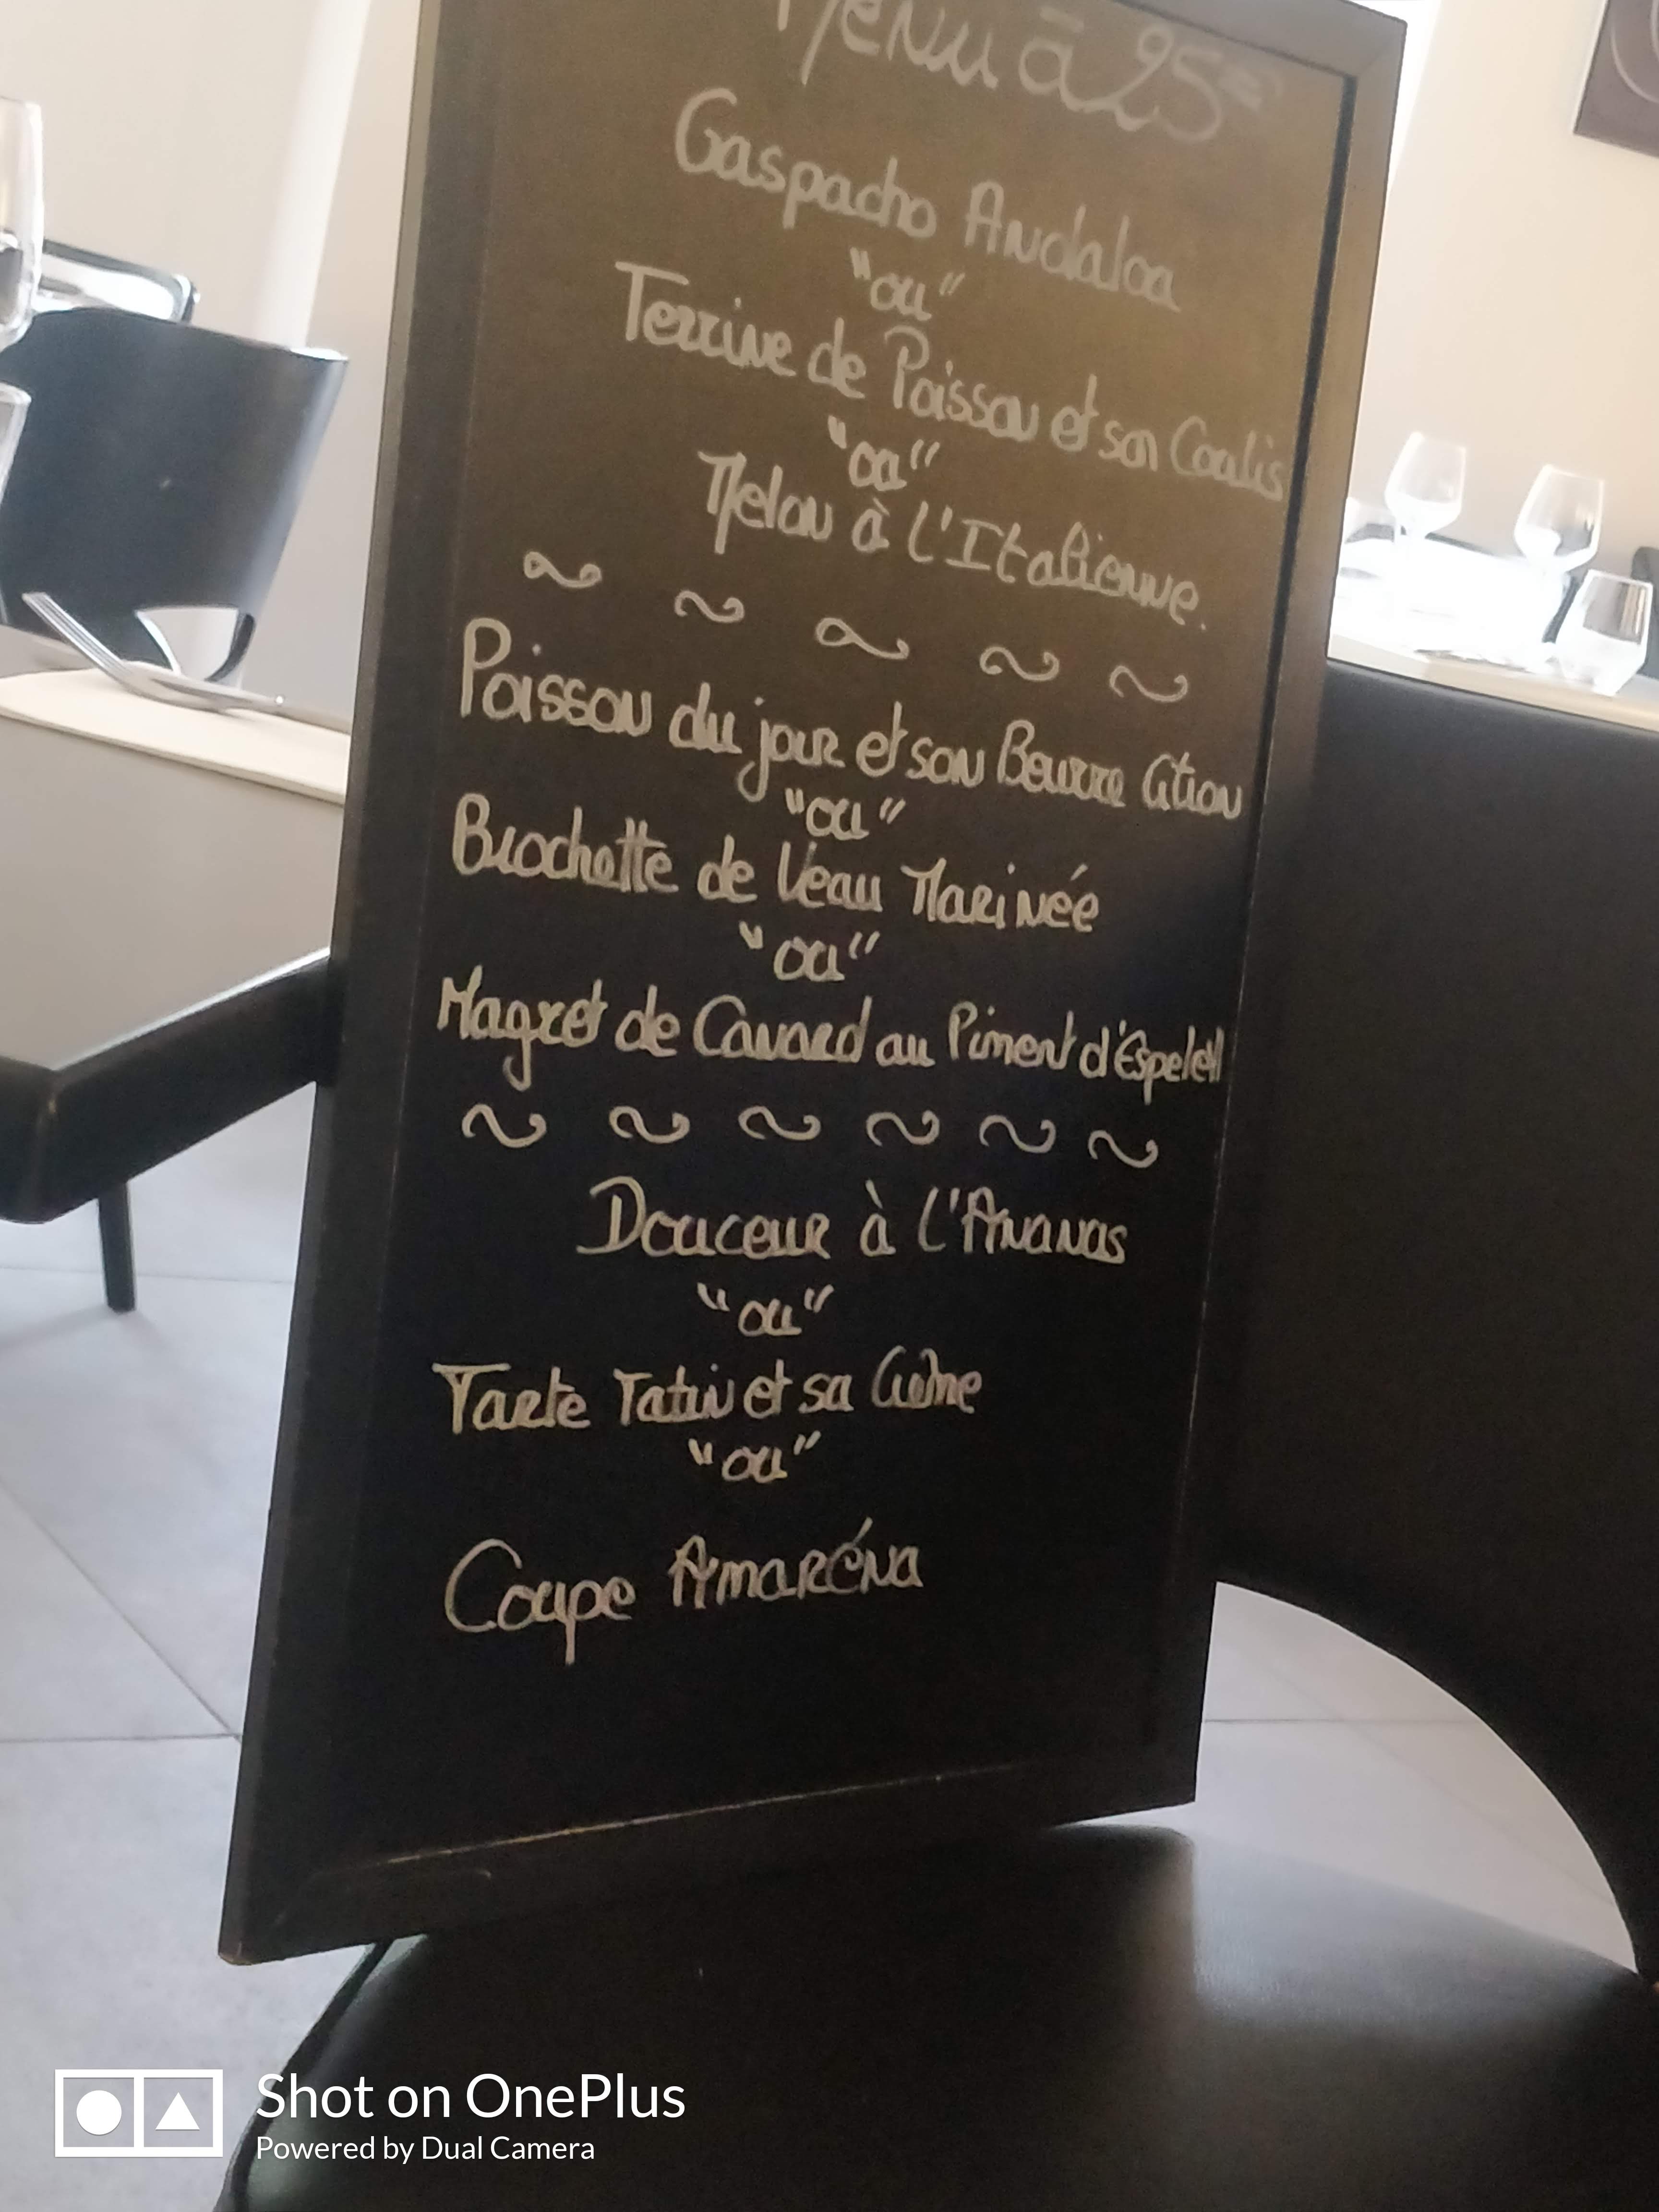 Menu à 25€
Gaspacho Andalou
"ou"
Terrine de Poisson et son Coulis
"ou"
Melon à l'Italienne.
Poisson du jour et son Beurre Citron
"ou"
Brochette de Veau Marinée
"ou"
Magret de Canard au Piment d'Espelett
Douceur à l'Ananas
"ou"
Tarte Tatin et sa Crème
"ou"
Coupe Amaréna
Shot on OnePlus
Powered by Dual Camera